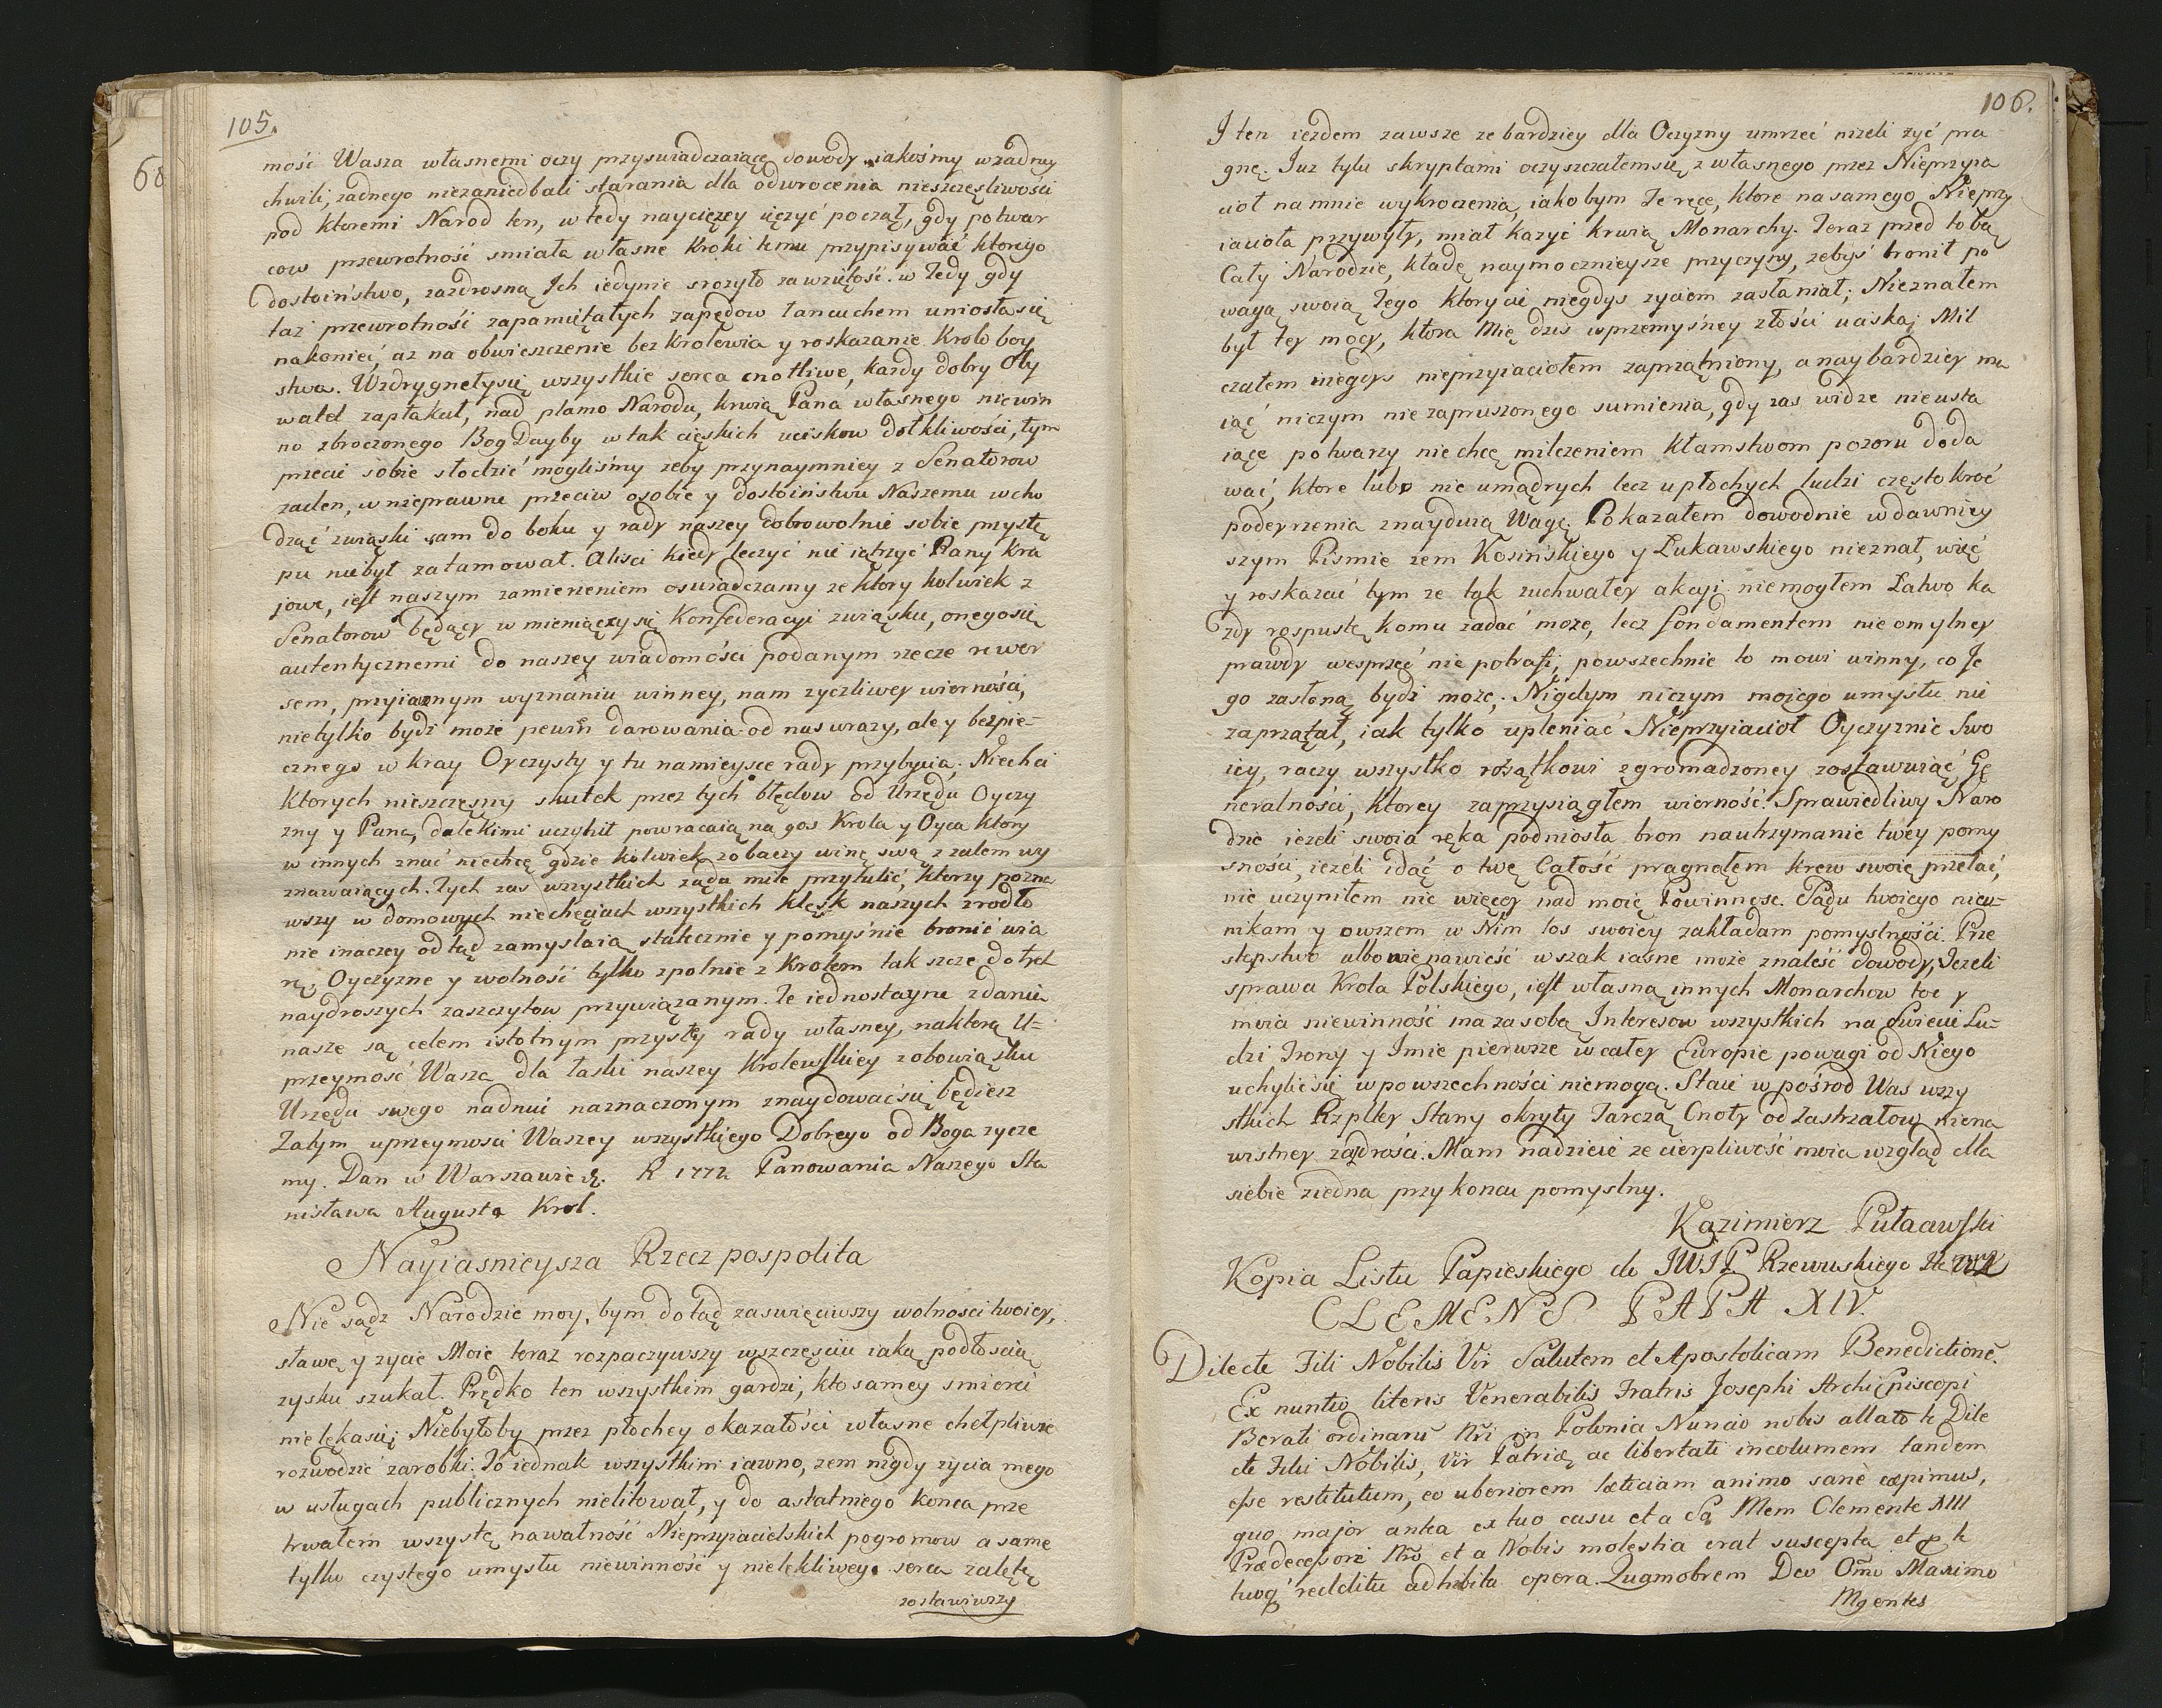 105.
mośi Wasza własnemi oczy przyswiadczaiącę dowody iakośmy wzadney
chwili, zadnego niezaniedbali starania dla odwrocenia nieszczęśliwości
pod ktoremi Narod ten, wtedy nayciężey ięczyć począł, gdy potwar
cow przewrotność smiała własne Kroki temu przypisywać ktorego
dostoiństwo, zazdrosną Jch iedynie srożyło zawziętość. w Tedy gdy
taż przewrotność zapamiętałych zapędow łancuchem uniosła się
nakonieć, az na obwieszczenie bezkrolewia y roskazanie Krolo boy
stwa. Wzdrygnęłysię wszystkie serca cnotliwe, każdy dobry Oby
watel zapłakał, nad plamo Narodu, krwią Pana własnego niewin
no zbroczonego Bog Dayby wtak cięskich uciskow dotkliwości, tym
przecie sobie słodzić mogliśmy zeby przynaymniey z Senatorow
zaden, w nieprawne przeciw osobie y dostoiństwu Naszemu wcho
dząć związki sam do boku y rady naszey dobrowolnie sobie przystę
pu niebył zatamował. Alisci kiedy leczyć nie iątrzyć Rany Kra
jowe, iest naszym zamierzeniem oswiadczamy ze ktory kolwiek z
Senatorow będący w mieniącey się Konfederacyi związku, onegosię
autentycznemi do naszey wiadomości podanym rzecze rewer
sem, przyiaznym wyznaniu winney, nam zyczliwey wierności,
nietylko bydź może pewin darowania od nas urazy, ale y bezpie-
cznego w kray Oyczysty y tu namieysce rady przybycia. Niechci
Ktorych nieszczęsny skutek przeztych błędow od Urzędu Oyczy
zny y Pana, dalekimi uczynił powracaią na gos Krola y Oyca ktory
w innych znać niechcę gdzie kolwiek zobaczy winę swą z zalem wy
znawaiących. Tych zas wszystkich żąda mile przytulić, ktorzy pozna
wszy w domowych niechęciach wszystkich klęsk naszych zrodło
nie inaczey odtąd zamyslaią statecznie y pomyśnie bronić wia
rę, Oyczyzne y wolność tylko zpolnie z Krolem tak szczę dotych
naydroszych zaszczytow przywiązanym. Te iednostayne zdania
nasze są celem istotnym przyszłey rady własney, naktorą U=
przeymość Wasza dla łaski naszey Krolewskiey zobowiąsku
Urzędu swego nadniu naznaczonym znaydować się będiesz
Zatym uprzeymosci Waszey wszystkiego Dobrego od Boga zycze
my. Dan w Warszawie d. R 1772 Panowania Naszego Sta
nisława Augusta Krol.
Nayiasnieysza Rzecz pospolita
Nie sądz Narodzie moy, bym dotąd zaswięciwszy wolności twoiey,
sławę y zycie Moie teraz rozpaczywszy wszczęsciu iaką podłoscią
zysku szukał. Prędko ten wszystkim gardzi, kto samey smierci
nielękasię; Niebyłoby przez płochey okazałości własne chełpliwie
rozwodzić zarobki. To iednak wszystkim iawno, zem nigdy zycia mego
w usługach publicznych nielitował, y do astatniego konca prze
trwałem wszystę nawalność Nieprzyiacielskich pogromow a same
tylko czystego umysłu niewinność y nielękliwego serca zaletę
zostawiwszy
106.
J ten iezdem zawsze ze bardziey dla Oyczyny umrzeć nizeli żyć pra
gnę. Juz tylu skryptami oczyszczałemsię z własnego przez Nieprzyia
cioł namnie wykroczenia, iakobym Te ręcę, ktore nasamego Nieprzy
iaciola przywyły, miał każyć krwią Monarchy. Teraz przed tobą
Cały Narodzie, kładę naymocznieysze przyczyny, zebyś bronił po
wagą swoią Tego ktory cie niegdys zyciem zasłaniał; Nieznałem
był tey mocy, ktora Mię dzis wprzemyśney złości uciska; Mil
czałem niegdys nieprzyiaciołem zaprzątniony, a naybardziey ma
iąć niczym niezapruszonego sumienia, gdy zas widze nieusta
iące potwarzy niechcę milczeniem kłamstwom pozoru doda
wać, ktore lubo nie umądrych lecz upłochych ludzi częstokroć
podeyrzenia znayduią Wagę. Pokazałem dowodnie wdawniey
szym Pismie zem Kosińskiego y Łukawskiego nieznał, więc
y roskazać tym ze tak zuchwałey akcyi niemogłem Łatwo ka
zdy rospustę komu zadać może, lecz fondamentem nieomylney
prawdy wesprzeć nie potrafi, powszechnie to mowi winny, co Je
go zasłoną bydź może. Nigdym niczym mojego umysłu nie
zaprzątał, iak tylko upleniać Nieprzyiacioł Oyczyznie Swo
iey, raczy wszystko rożątkowi zgromadzoney zostawuiąć Ge
neralności, ktorey zaprzysiągłem wierność. Sprawiedliwy Naro
dzie ieżeli swoia ręka podniosła bron nautrzymanie twey pomy
sności, ieżeli idąć o twę Całość pragnąłem krew swoię przelać,
nie uczyniłem nic więcey nad moię Powinnosc. Sądu twoiego nieu-
nikam y owszem w Nim los swoiey zakładam pomyslności. Prze
stępstwo albo nienawiść wszak iasne może znaleść dowody, Jezeli
sprawa Krola Polskiego, iest własną innych Monarchow toć y
moia niewinność ma zasobą Interesow wszystkich na Swiecie Lu-
dzi Trony y Jmie pierwsze w całey Europie powagi od Niego
uchylić się w powszechności niemogą. Staie w pośrod Was wszy
stkich Rzpltey Stany okryty Tarczą Cnoty od Zastrzałow niena
wistney zazdrości. Mam nadzieie ze cierpliwość moia wzgląd dla
siebie ziedna przy koncu pomyslny.
Kazimierz Pułaawski
Kopia Listu Papieskiego do JWJP Rzewuskiego
CLEMENS PAPA XIV.
Dilecte Fili Nobilis Vir Salutem et Apostolicam Benedictionē.
Ex nuntio literis Venerabilis Fratris Josephi Archi Episcopi
Berati ordinarii Nri in Polonia Nuncio nobis allato te Dile
cte Fili Nobilis, Vir Patriæ ac libertati incolumem tandem
esse restitutum, eo uberiorem læticiam animo sanè cæpimus,
quo major antea ex tuo casu et a Sa Mem Clemente XIII
Prædecessore Nro et a Nobis molestia erat suscepta et p te
tuoq redditu adhibita opera. Quamobrem Deo Omo Maximo
Mgentes